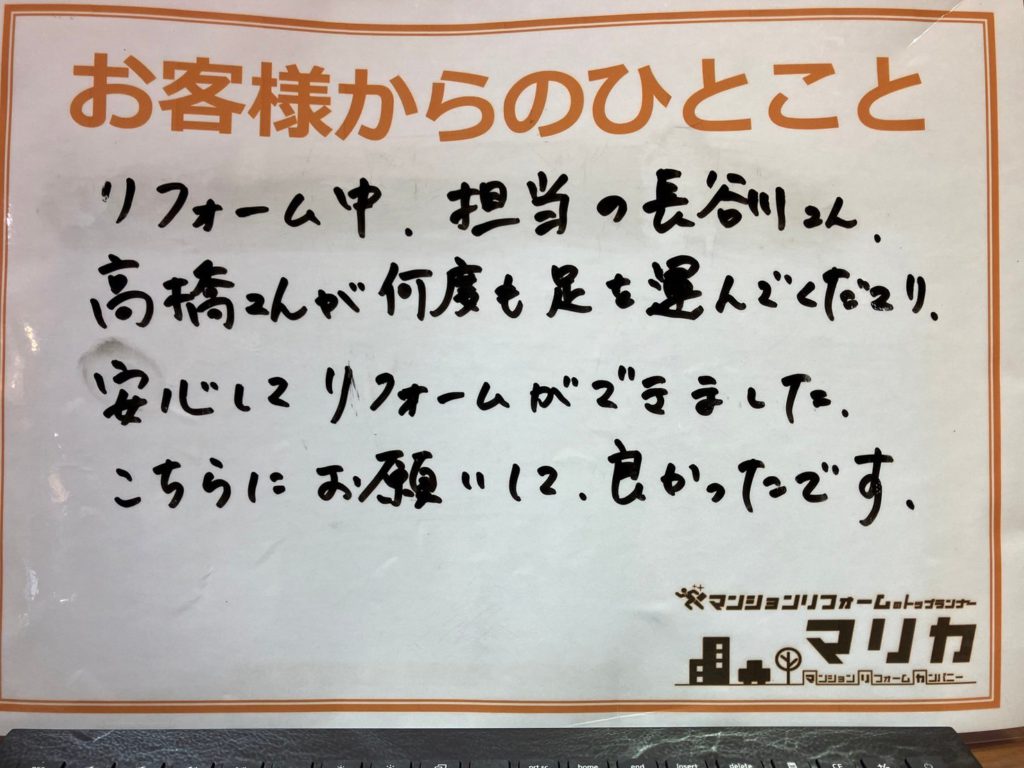 お客様からのひとこと
リフォーム中、担当の長谷川さん、
高橋さんが何度も足を運んでくださり、
安心してリフォームができました。
こちらにお願いして、良かったです。
マンションリフォームのトップランナー
マリカ
マンションリフォームカンパニー
prt sc home end insert delete